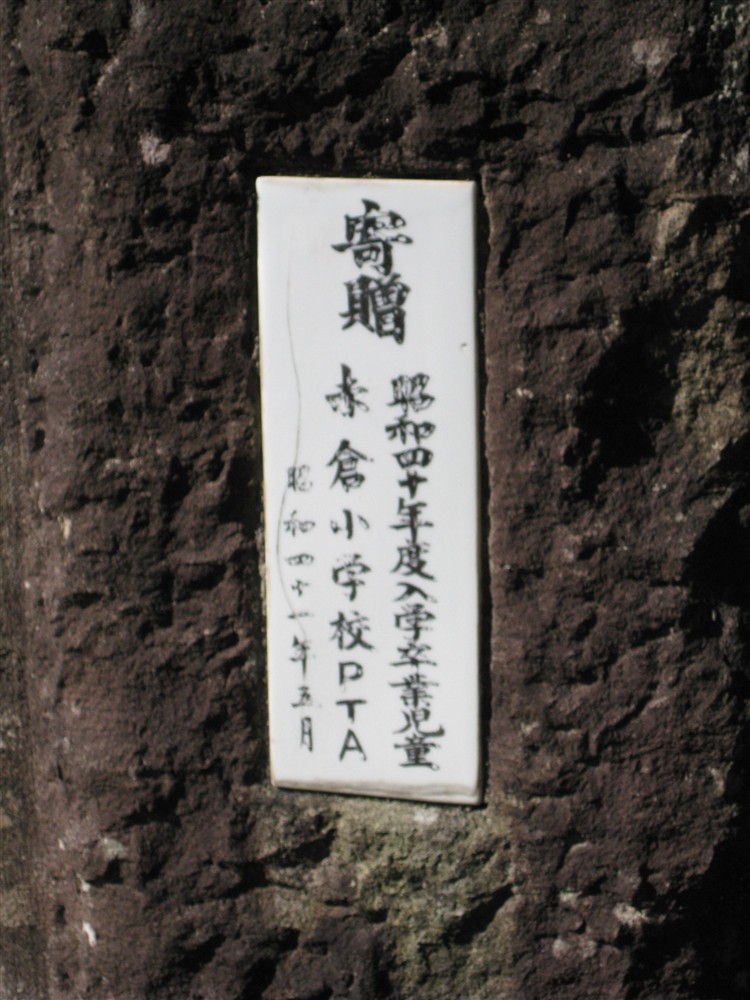 寄贈
昭和四十年度入学卒業児童
赤倉小学校PTA
昭和四十一年五月